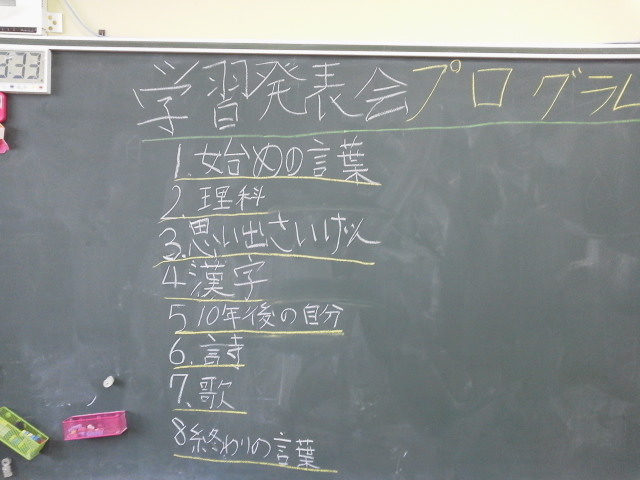 学習発表会プログラム
1.始めの言葉
2.理科
3.思い出さいげん
4漢字
5.10年後の自分
6.詩
7.歌
8終わりの言葉